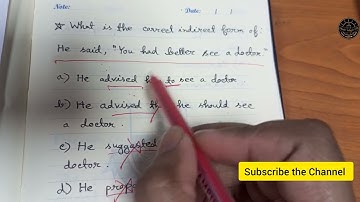 Note:
Date: / /
☆ What is the correct indirect form of:
He said, "You had better see a doctor."
a) He advised to see a doctor.
b) He advised he should see
a doctor.
c) He suggested
doctor.
d) He
Subscribe to the Channel